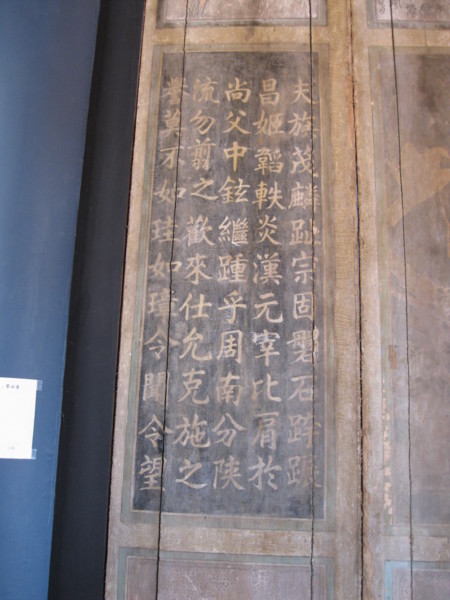 夫族茂麟趾宗固磐石跨躡
昌姬韜軼炎漢元宰比肩於
尚父中鉉繼踵乎周南分陝
流勿翦之歡來仕允克施之
譽莫不如珪如璋令聞令望